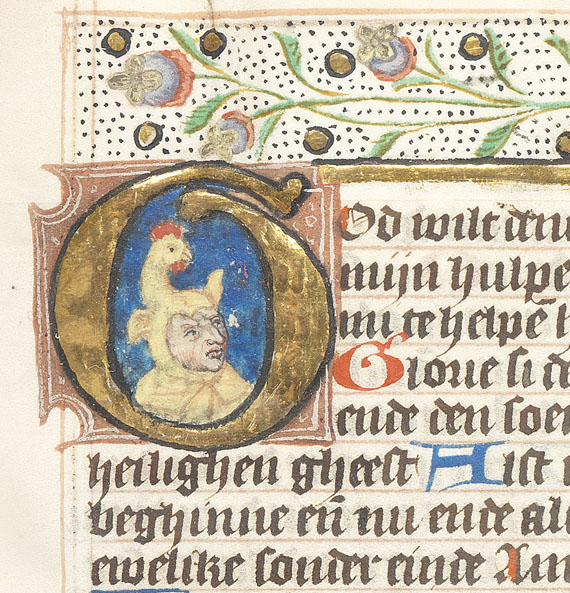 God wilt den
mijn hulpe
mi te helpē h
Glorie si d
ende den soe
heilighen gheest Alst
beghinne en̄ nu ende al
ewelike sonder einde Am